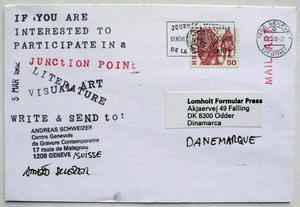 IF YOU ARE
INTERESTED TO
PARTICIPATE IN A
JUNCTION POINT
LITERATURE
VISUAL ART
WRITE & SEND to:
ANDREAS SCHWEIZER
Centre Genevois
de Gravure Contemporaine
17 route de Malagnou
1208 GENEVE /SUISSE
JOURNEE
GENEVE
DE LA
HELVETIA
50
MAIL ART
5 MAR
Lomholt Formular Press
Akjaervej 49 Falling
DK 8300 Odder
Dinamarca
DANEMARQUE